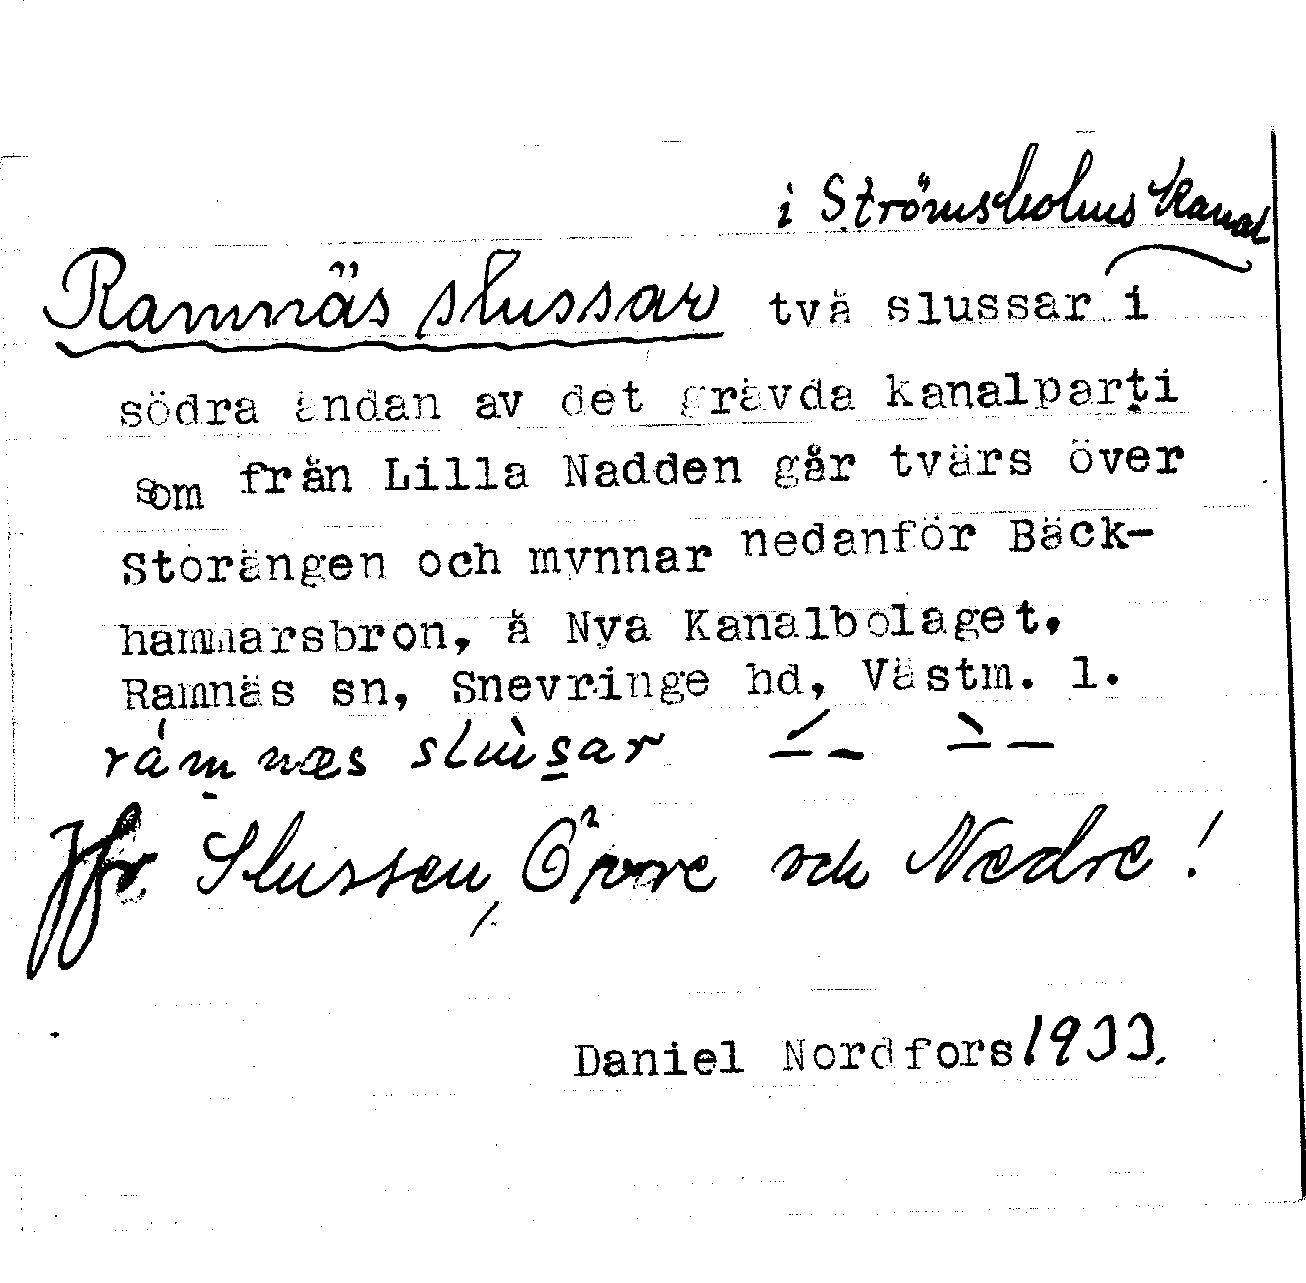 i Strömsholms Kanal
Ramnäs slussar två slussar i
södra ändan av det grävda kanalparti
som från Lilla Nadden går tvärs över
Storängen och mynnar nedanför Bäck-
hammarsbron, å Nya Kanalbolaget.
Ramnäs sn, Snevringe hd, Västm. l.
rámnæs slùsar
Jfr Slussen, Övre och Nedre!
Daniel Nordfors 1933.